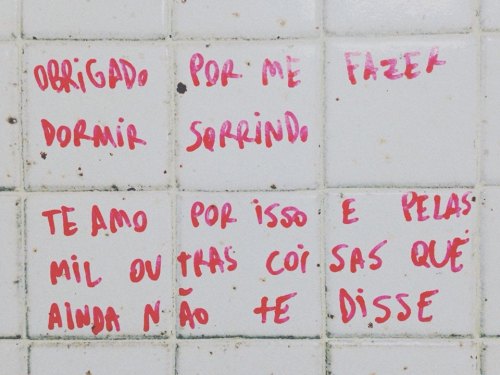 OBRiGADO POR ME FAZER
DORMiR SORRiNDO
TE AMO POR iSSO E PELAS
MiL OUTRAS COiSAS QUE
AiNDA NÃO tE DiSSE